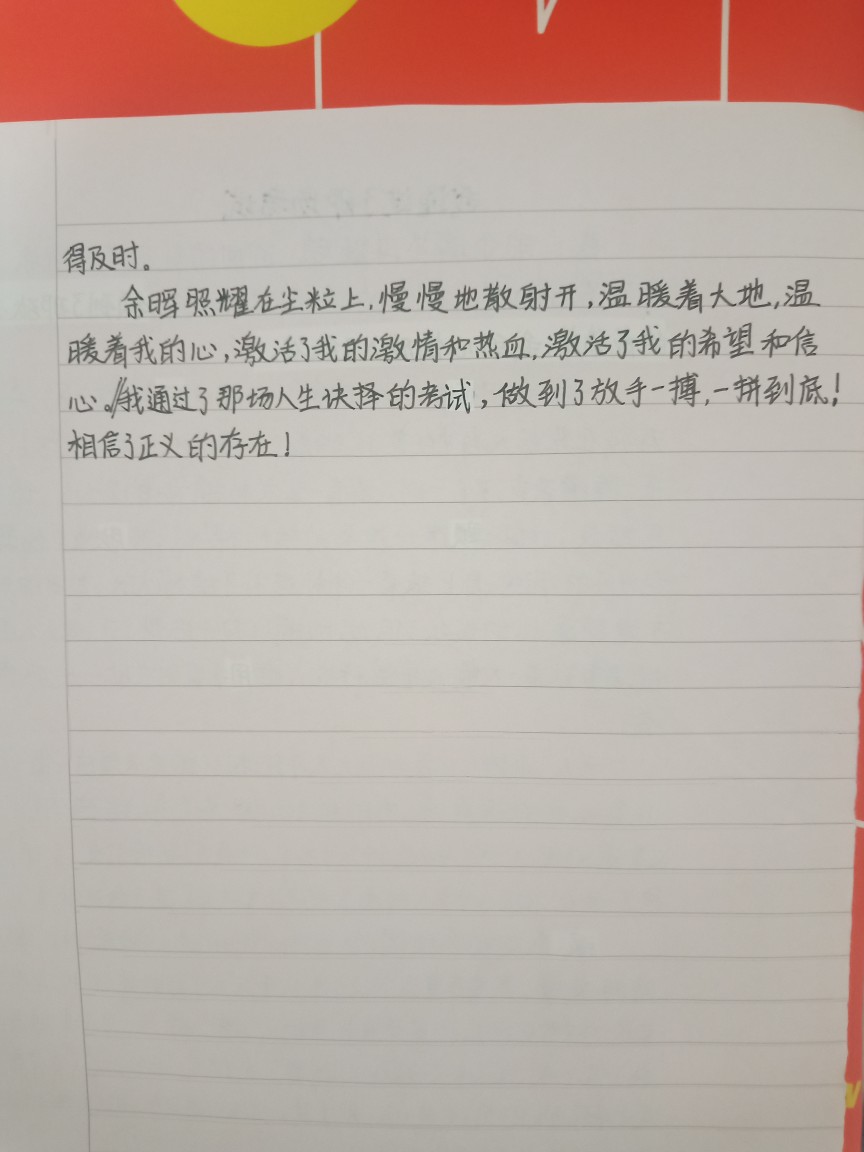 得及时。
余晖照耀在尘粒上,慢慢地散射开,温暖着大地,温
暖着我的心,激活了我的激情和热血,激活了我的希望和信
心。//我通过了那场人生诀择的考试,做到了放手一搏,一拼到底!
相信了正义的存在!